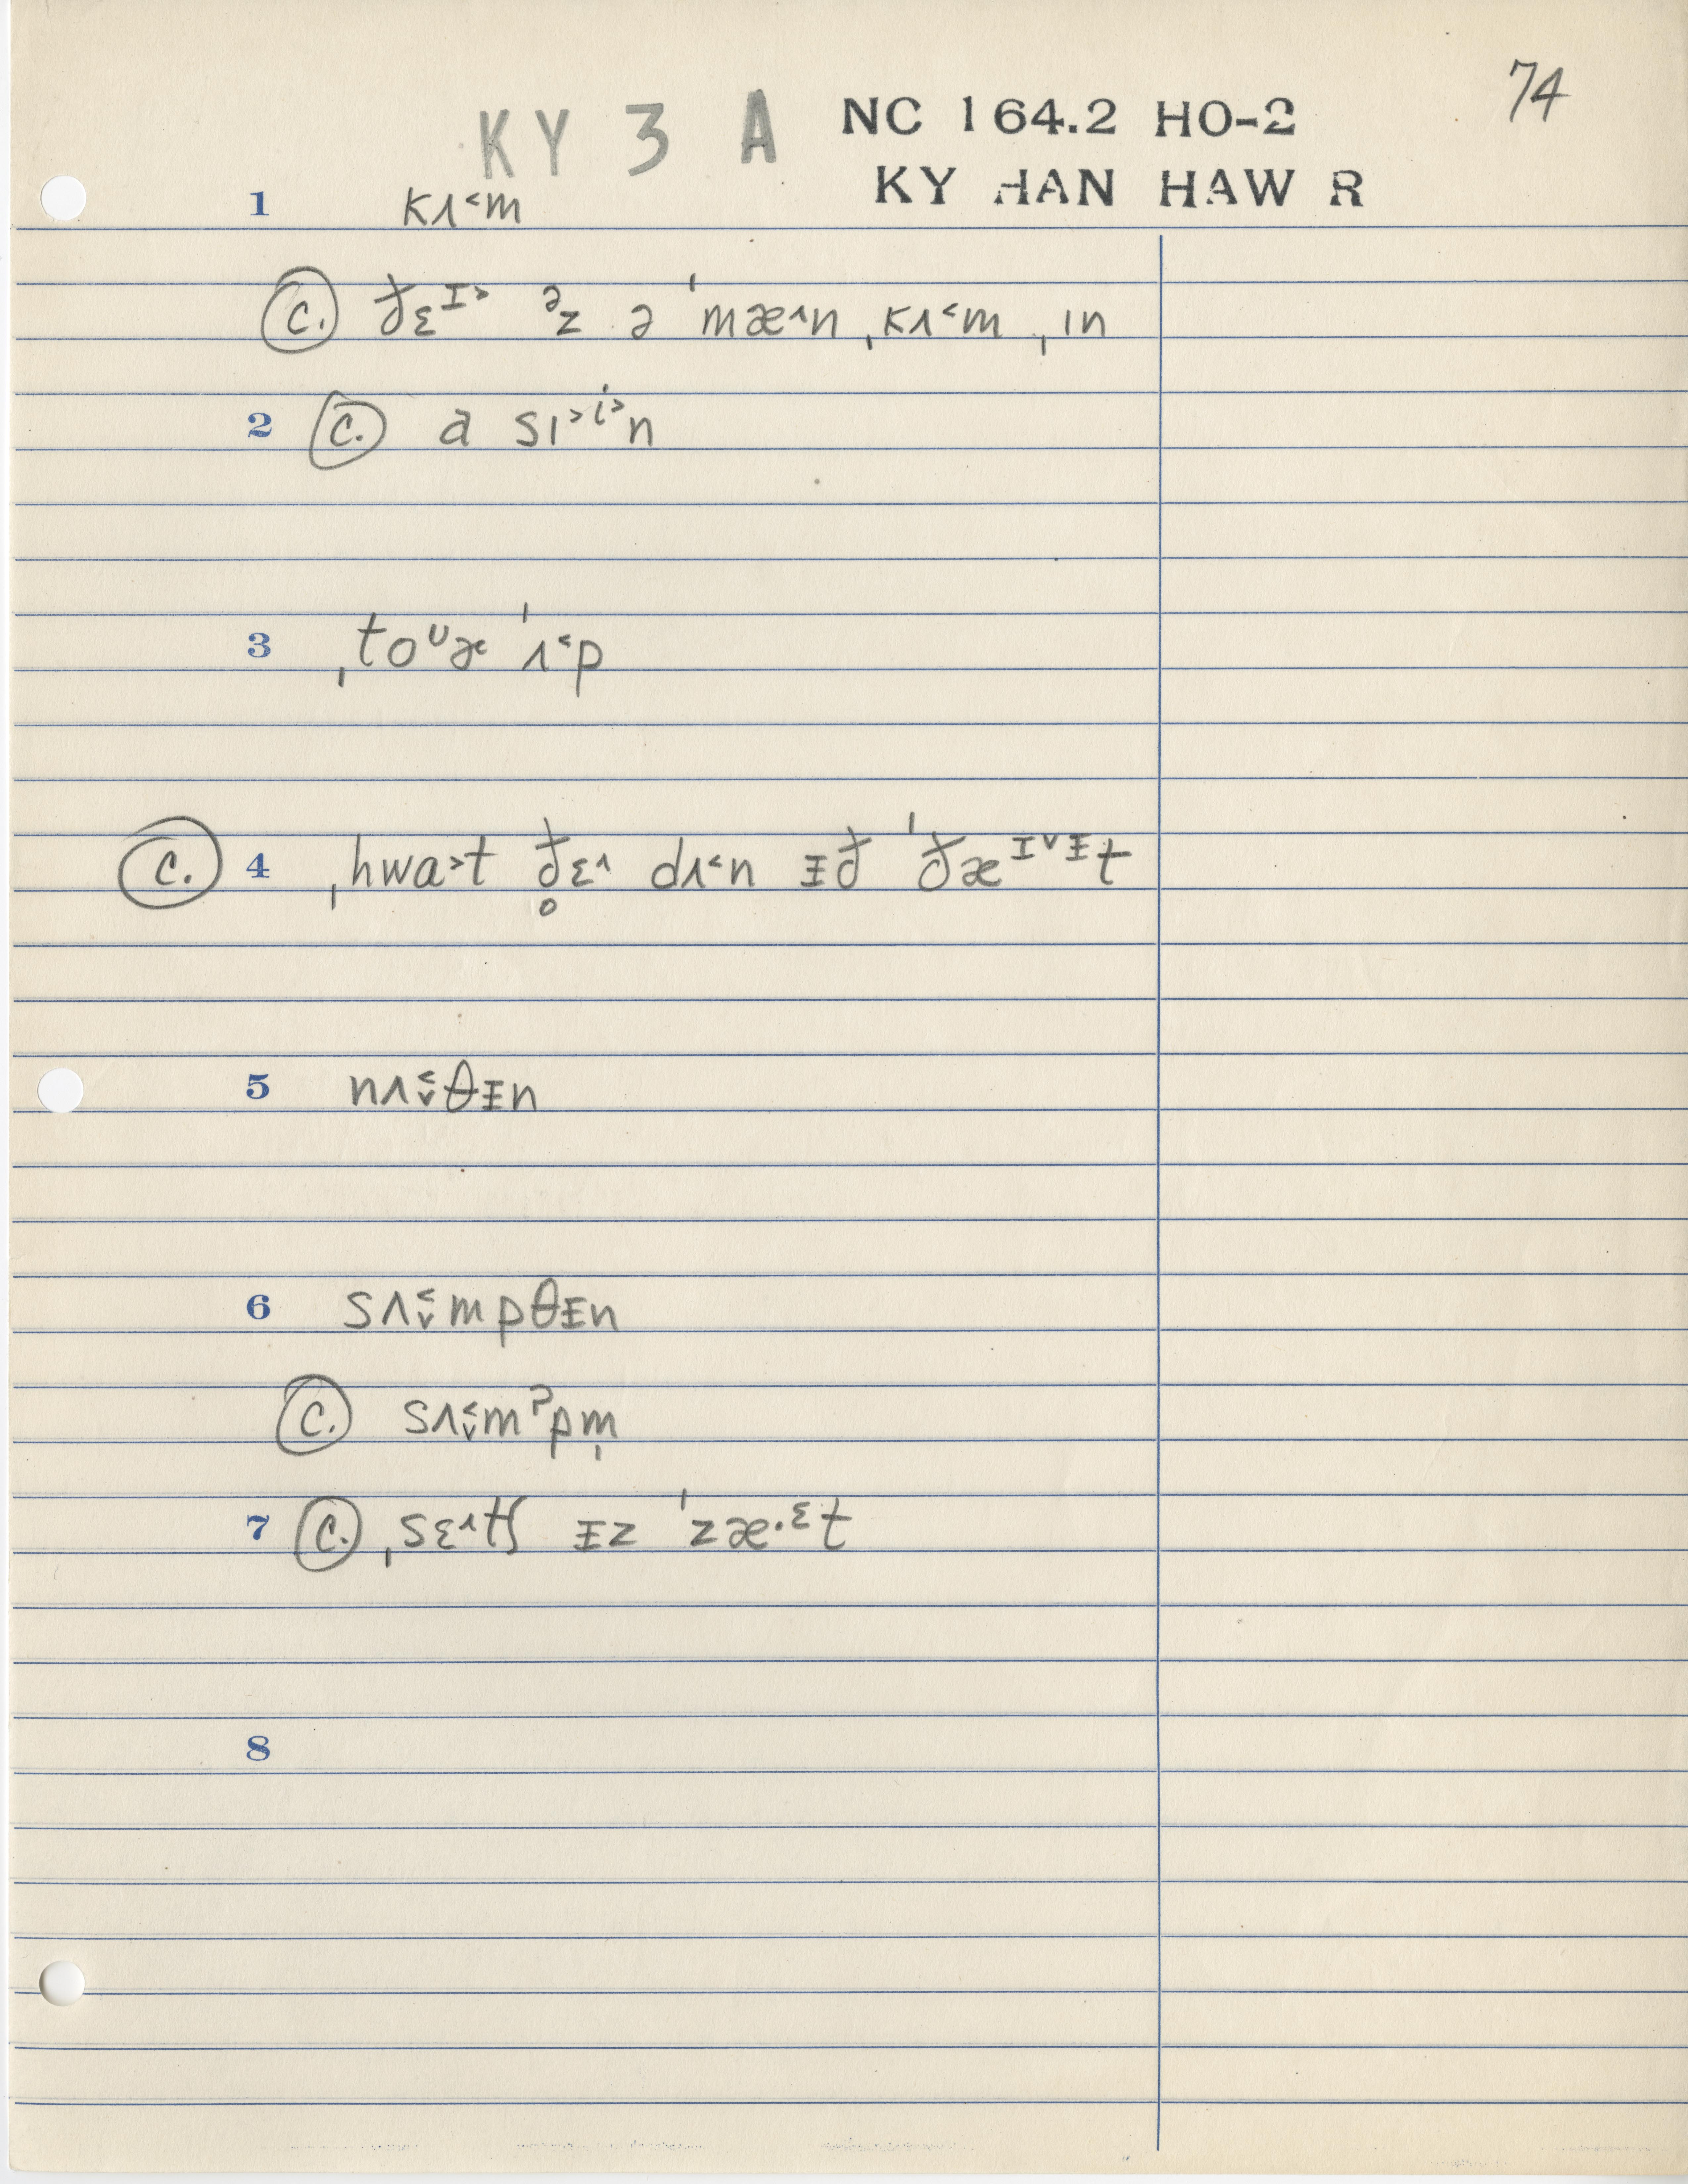 74
KY 3 A NC 164.2 HO-2
KY HAN HAW R
1 kʌ˂m
c. ðɛᶦ˃ ᵊz ə ˈmæ˄n ˌkʌ˂m ˌɪn
2 c. a sɪ˃ⁱ˃n
3 ˌtoᶷɚ ˈʌ˂p
c. 4 ˌhwɑ˃t ð̥ɛ˄ dʌ˂n ᵻð ˈðæᶦ˅ᵻt
5 nʌ˂˅θᵻn
6 sʌ˂˅mpθᵻn
c. sʌ˂˅mˀpm̩
7 c. ˌsɛ˄tʃ ᵻz ˈzæ·ᵋt
8